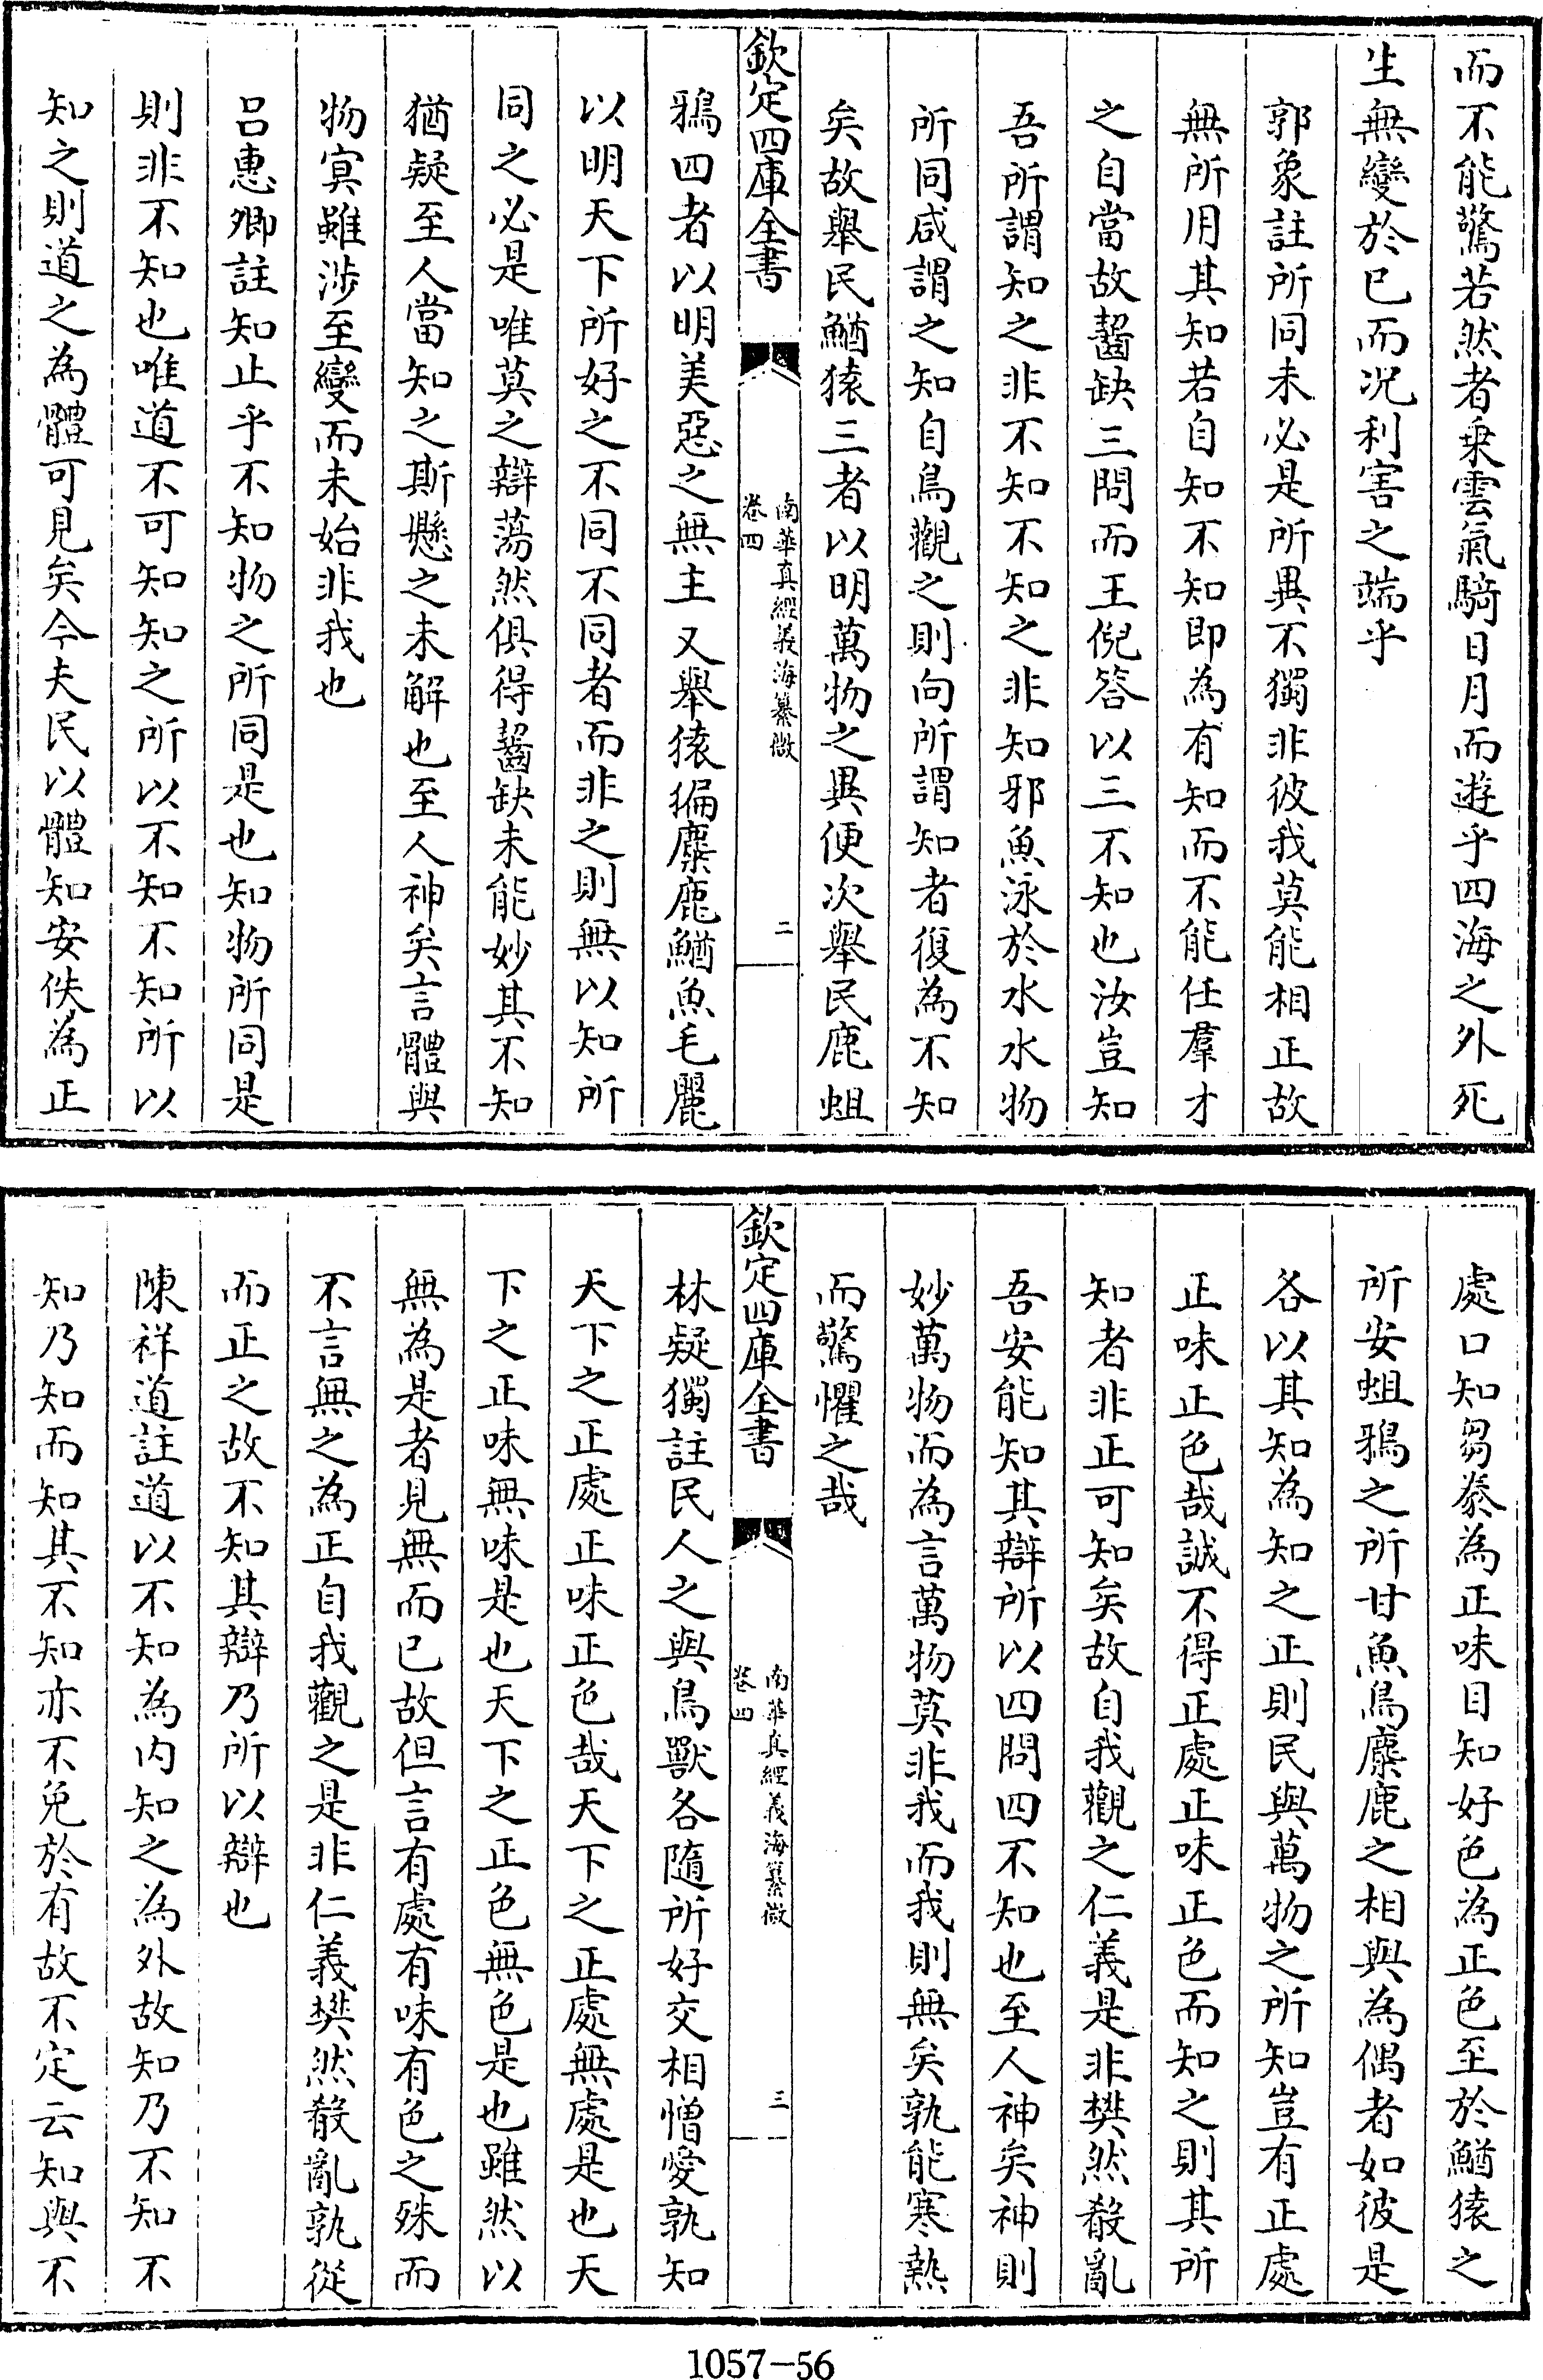 而不能驚若然者乗雲氣騎日月而遊乎四海之外死
生無變於已而况利害之端乎
郭象註所同未必是所異不獨非彼我莫能相正故
無所用其知若自知不知即為有知而不能任羣才
之自當故齧缺三問而王倪答以三不知也汝豈知
吾所謂知之非不知不知之非知邪魚泳於水水物
所同咸謂之知自鳥觀之則向所謂知者復為不知
矣故舉民鰌猿三者以明萬物之異便次舉民鹿蛆
欽定四庫全書
南華真經義海纂微
卷四
二
鴉四者以明美惡之無主又舉猿猵麋鹿鰌魚毛麗
以明天下所好之不同不同者而非之則無以知所
同之必是唯莫之辯蕩然俱得齧缺未能妙其不知
猶疑至人當知之斯懸之未解也至人神矣言體與
物寞雖涉至變而未始非我也
吕惠卿註知止乎不知物之所同是也知物所同是
則非不知也唯道不可知知之所以不知不知所以
知之則道之為體可見矣今夫民以體知安佚為正
處口知芻豢為正味目知好色為正色至於鰌猿之
所安蛆鴉之所甘魚鳥麋鹿之相與為偶者如彼是
各以其知為知之正則民與萬物之所知豈有正處
正味正色哉誠不得正處正味正色而知之則其所
知者非正可知矣故自我觀之仁義是非樊然殽亂
吾安能知其辯所以四問四不知也至人神矣神則
妙萬物而為言萬物莫非我而我則無矣孰能寒熱
而驚懼之哉
欽定四庫全書
南華真經義海纂微
卷四
三
林疑獨註民人之與鳥獸各隨所好交相憎愛孰知
天下之正處正味正色哉天下之正處無處是也天
下之正味無味是也天下之正色無色是也雖然以
無為是者見無而已故但言有處有味有色之殊而
不言無之為正自我觀之是非仁義樊然殽亂孰從
而正之故不知其辯乃所以辯也
陳祥道註道以不知為内知之為外故知乃不知不
知乃知而知其不知亦不免於有故不定云知與不
1057-56